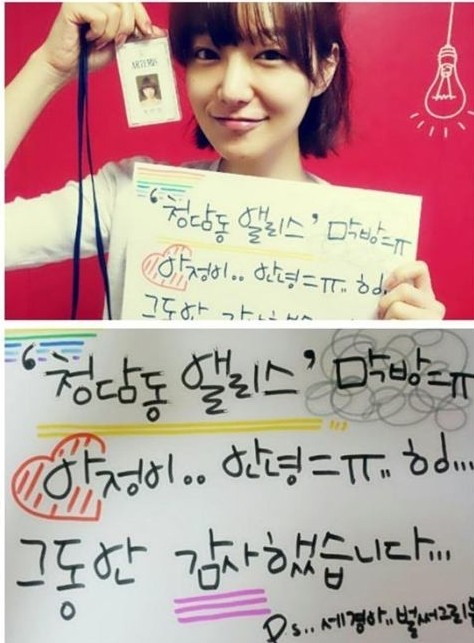 ARTEMIS
‘청담동 앨리스’ 막방=ㅠ
아정이.. 안녕=ㅠ.. 히..
그동안 감사했습
‘청담동 앨리스’ 막방=ㅠ
아정이.. 안녕=ㅠ.. 히...
그동안 감사했습니다...
Ps.. 세경아.. 벌써그리